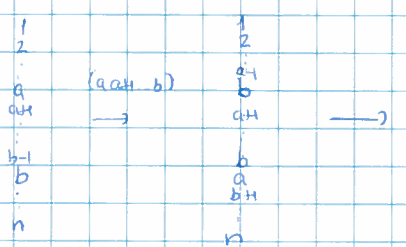 1
2
.
a
a+1
.
b-1
b
.
n
(a a+1 b)
→
1
2
.
a-1
b
a+1
.
b
a
b+1
.
n
→